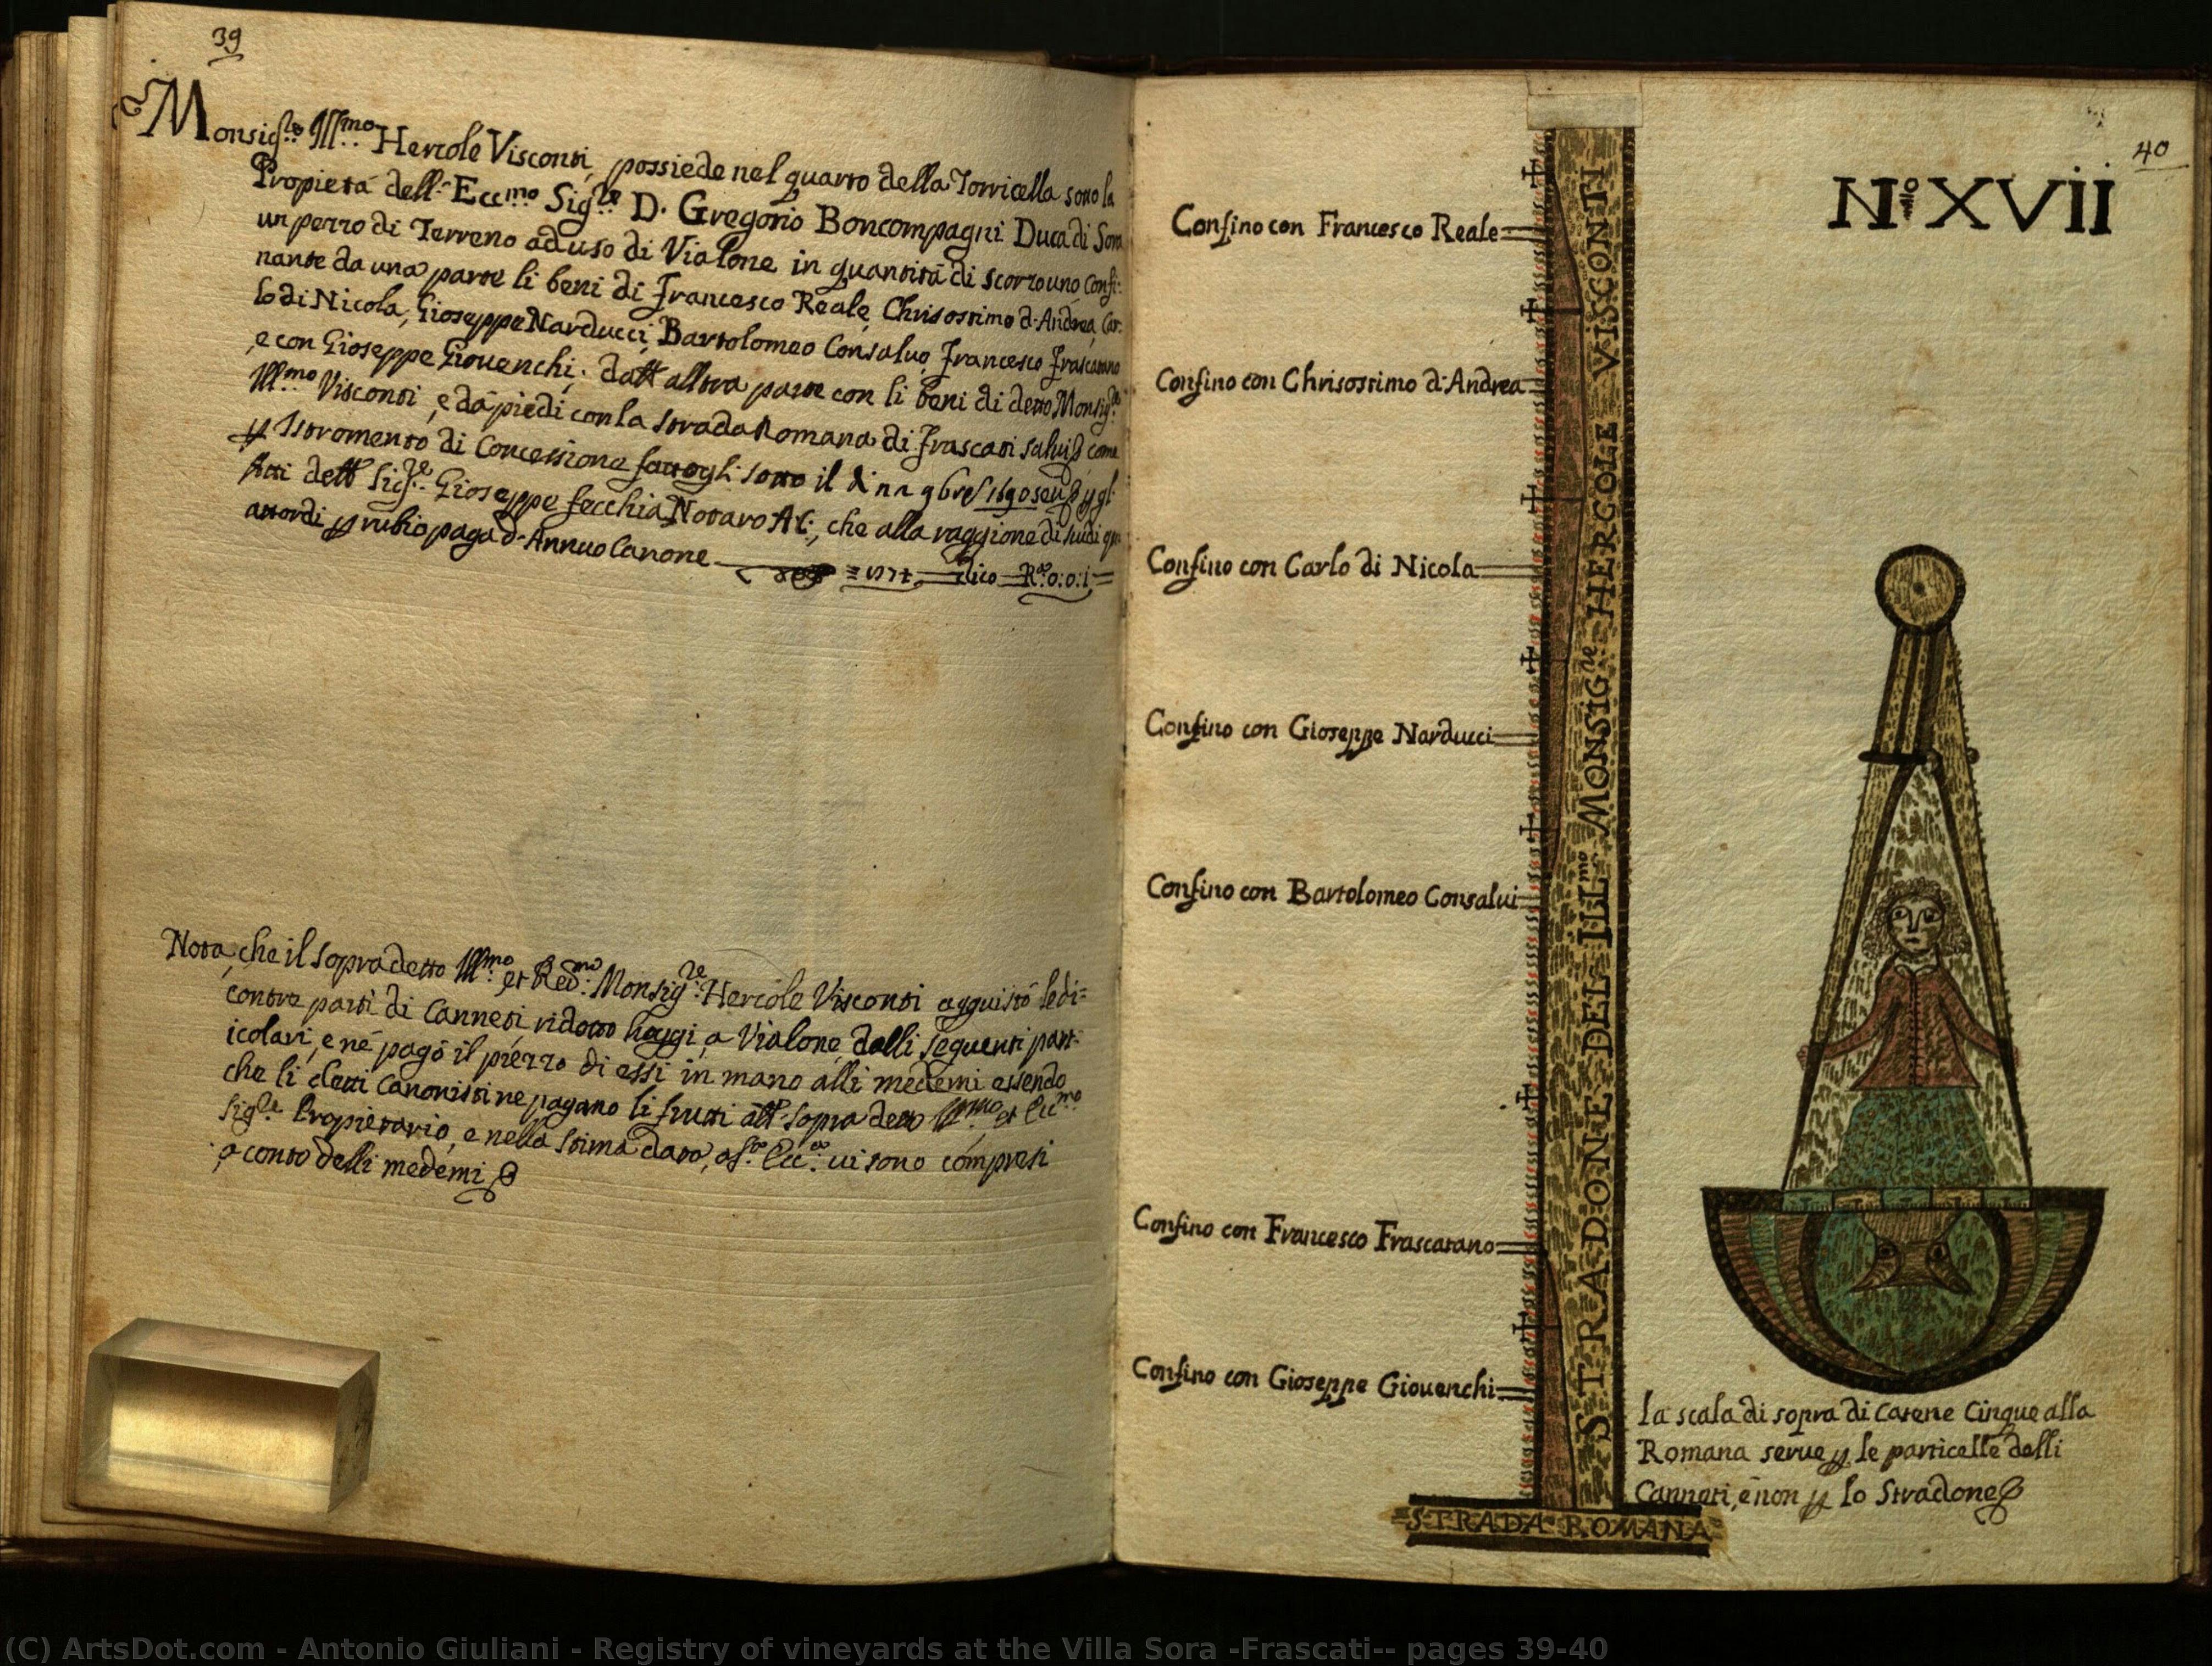 39
Monsig.re Ill.mo Hercole Visconti, possiede nel quarto della Torricella sotto la
Propietá dell' Ecc.mo Sig.re D. Gregorio Boncompagni Duca di Sora
un pezzo di Terreno ad uso di Vialone in quantitá di scorzo uno, Confi:
nante da una parte li beni di Francesco Reale, Chrisostimo d'Andrea, Car:
lo di Nicola, Gioseppe Narducci, Bartolomeo Consalvo, Francesco Frascatano
e con Gioseppe Giovenchi; dall' altra parte con li beni di detto Monsig.re
Ill.mo Visconti, e dá piedi con la strada Romana di Frascati salvis come
Istromento di Concessione fattogli sotto il di 9bre 1690
Atti dell Sig.re Gioseppe Secchia Notaro AC:, che alla raggione di scudi
rubio paga d'Annuo Canone
dico R.o o:o:i
Nota, che il sopradetto Ill.mo et Red.mo Monsig.re Hercole Visconti acquistó le di=
contro parti di Canneti, ridotto haggi, a Vialone, dalli sequenti part:
icolari, e né pagó il prezzo di essi in mano alli medemi essendo
che li detti Canonisti ne pagano li frutti all' sopra detto et Ecc.mo
Sig.re Propietario, e nella stima data, vi sono compresi
a conto delli medemi
40
N.o XVII
Confino con Francesco Reale
Confino con Chrisostimo d'Andrea
Confino con Carlo di Nicola
Confino con Gioseppe Narducci
Confino con Bartolomeo Consalui
Confino con Francesco Frascatano
Confino con Gioseppe Giouenchi
STRADONE DEL ILL.mo MONSIG.re HERCOLE VISCONTI
STRADA ROMANA
la scala di sopra di Catene Cinque alla
Romana serue le particelle delli
Canneti, e non lo Stradone
(C) ArtsDot.com - Antonio Giuliani - Registry of vineyards at the Villa Sora -Frascati-- pages 39-40